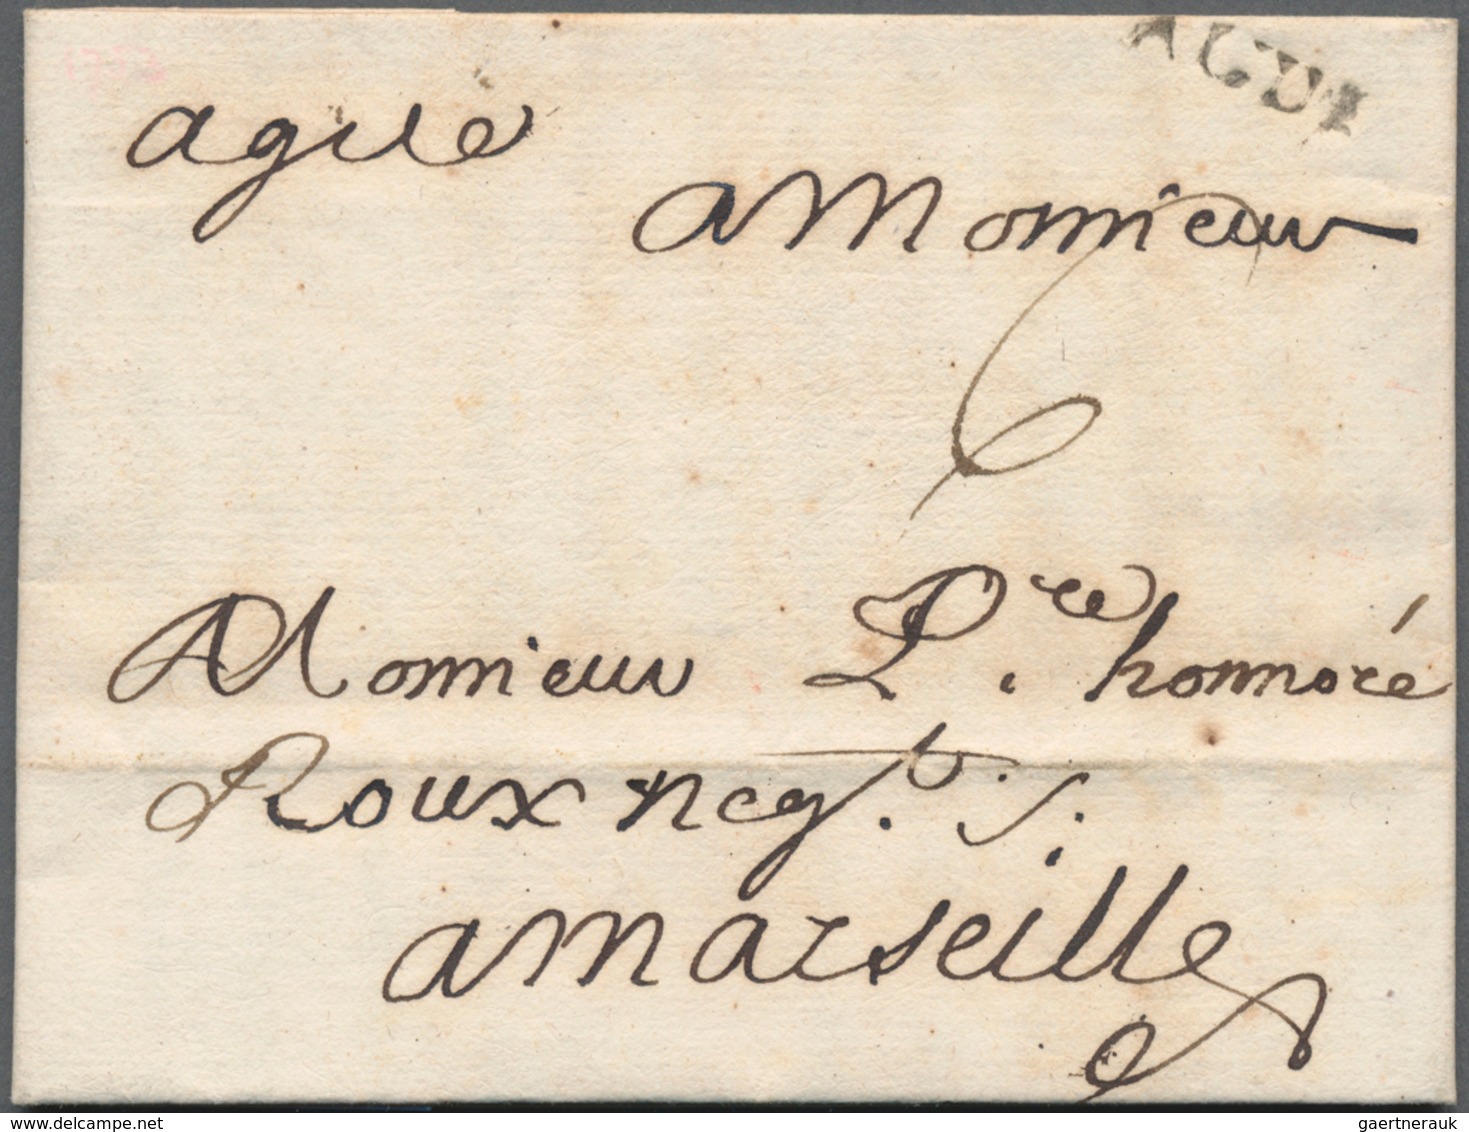 AGDE
ague
a Monsieur
6
Monsieur P.re honnoré
Roux neg.t
a Marseille
gaertnerauk